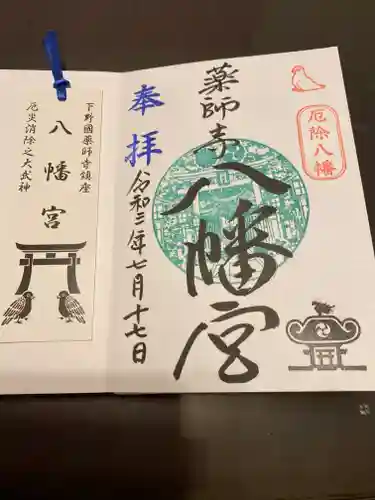 奉拝
薬師寺
八幡宮
令和三年七月十七日
厄除八幡
下野國薬師寺鎮座
八幡宮
厄災消除之大武神